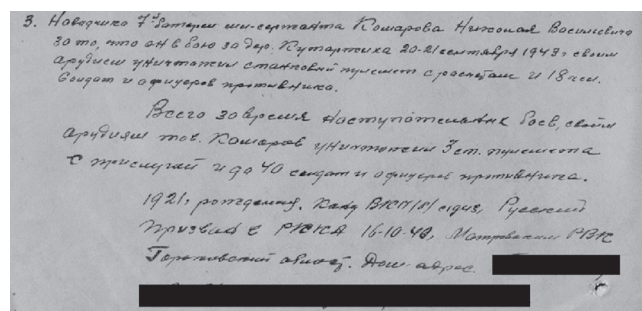 3. Наводчика 7й батареи мл-сержанта Комарова Николая Васильевича
за то, что он в бою за дер. 20-21 сентября 1943 г своим
орудием уничтожил станковый пулемет с расчетом и 18 чел.
солдат и офицеров противника.
Всего за время наступательных боев, своим
орудием тов. Комаров уничтожил 3 ст. пулемета
с прислугой и до 40 солдат и офицеров противника.
1921г рождения, канд ВКП/б/ с 1943, Русский
Призван в РККА 16-10-40, РВК
Горьковской област. Дом. адрес.